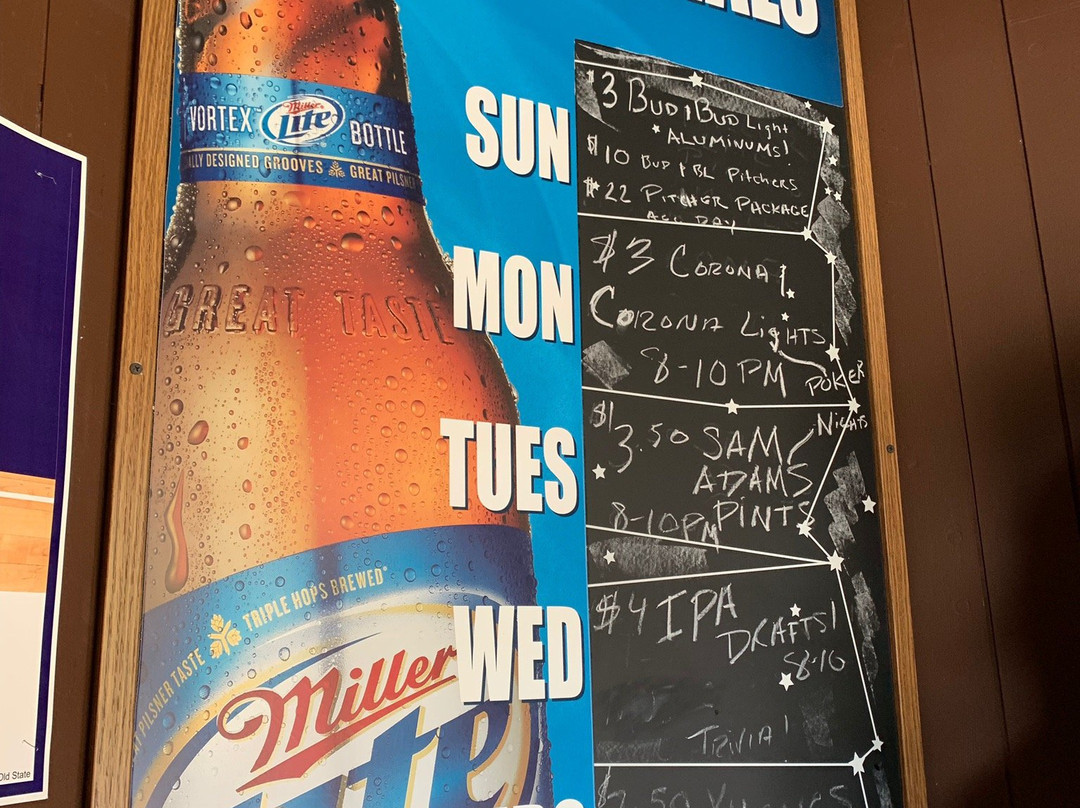 SUN
$3 BUD & BUD Light
ALUMINUMS!
$10 BUD & BL Pitchers
$22 PITCHER PACKAGE
ALL DAY
MON
$3 CORONA &
CORONA LigHTS
8-10 PM
POKER
NIGHTS
TUES
$3.50 SAM
ADAMS
PINTS
8-10PM
WED
$4 IPA
DRAFTS!
8-10
TRIVIA!
VORTEX
Miller
Lite
BOTTLE
ALLY DESIGNED GROOVES
GREAT PILSNE
GREAT TASTE
PILSNER TASTE
TRIPLE HOPS BREWED
Miller
Lite
Old State